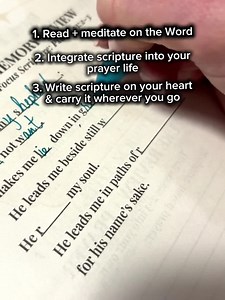 1. Read + meditate on the Word
2. Integrate scripture into your
prayer life
3. Write scripture on your heart
& carry it wherever you go
MEMORY REVIEW
my
not want
makes me lie down in g
He leads me beside still w
He r_____ my soul.
He leads me in paths of r
for his name's sake.